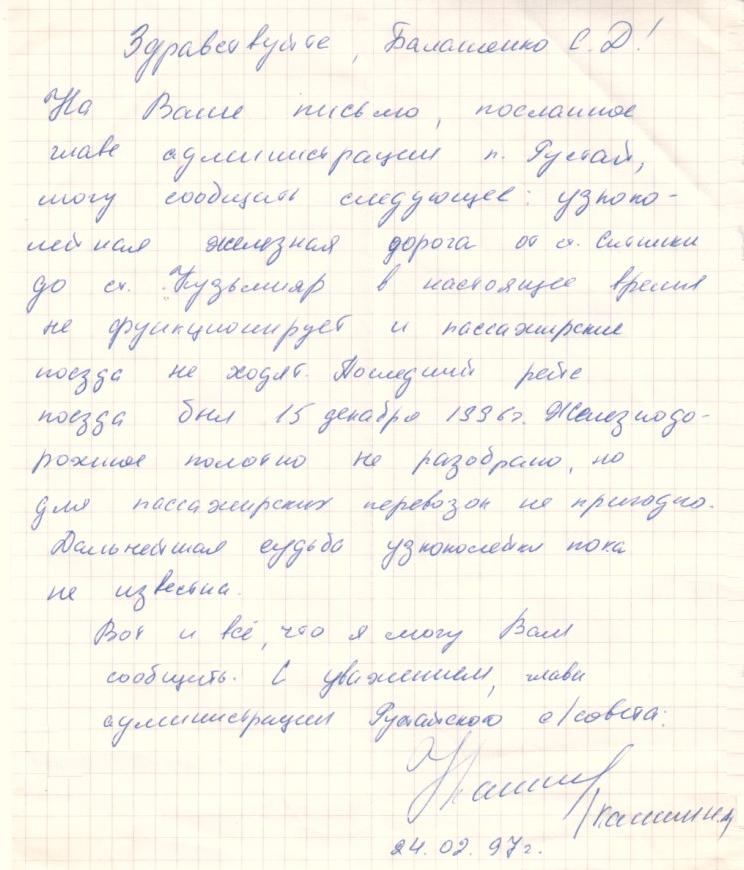 Здравствуйте, Балашенко С. Д!
На Ваше письмо, посланное
главе администрации п. Рустай,
могу сообщить следующее: узкоко-
лейная железная дорога от ст. Ситники
до ст. Кузьмияр в настоящее время
не функционирует и пассажирские
поезда не ходят. Последний рейс
поезда был 15 декабря 1996г. Железнодо-
рожное полотно не разобрано, но
для пассажирских перевозок не пригодно.
Дальнейшая судьба узкоколейки пока
не известна.
Вот и всё, что я могу Вам
сообщить. С уважением, глава
администрации Рустайского с/совета:
24.02.97г.